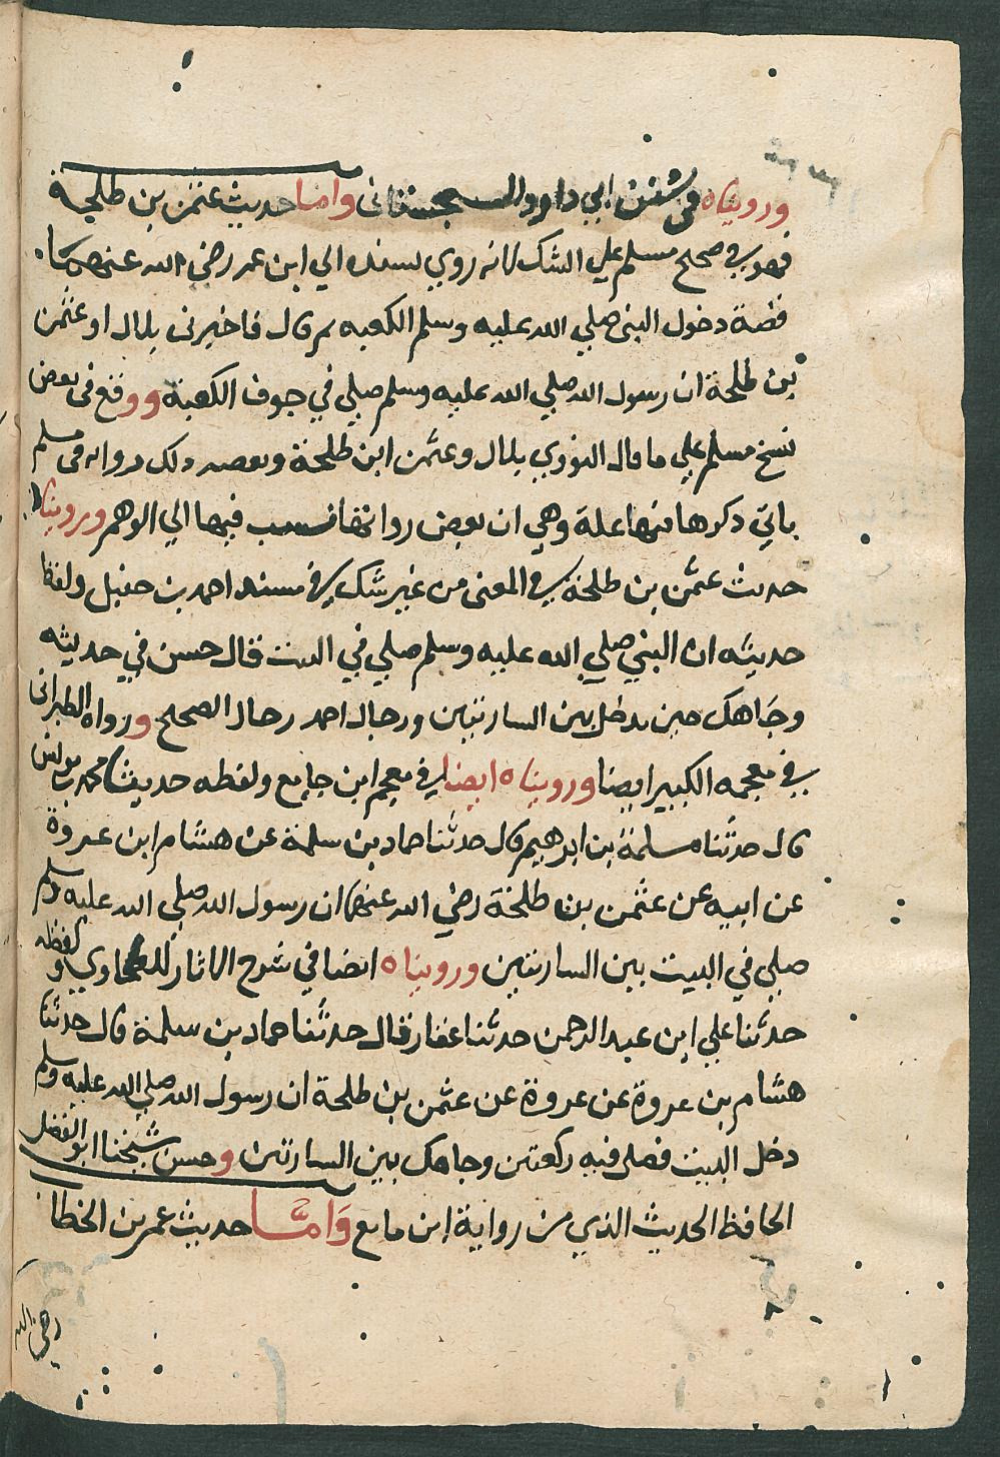 ورويناه في سنن ابي داود السجستاني واما حديث عثمن بن طلحة
فهو في صحيح مسلم علي الشك لانه روي بسنده الي ابن عمر رضي الله عنهما
قصة دخول النبي صلي الله عليه وسلم الكعبه ثم قال فاخبرني بلال او عثمن
بن طلحة ان رسول الله صلي الله عليه وسلم صلي في جوف الكعبة ووقع في بعض
نسخ مسلم علي ما قال النووي بلال وعثمن ابن طلحة ويعضد ذلك رواية في مسلم
ياتي ذكرها منها علة وهي ان بعض رواتها نسب فيها الي الوهم وروينا
حديث عثمن بن طلحة في المعنى من غير شك في مسند احمد بن حنبل ولفظ
حديثه ان النبي صلي الله عليه وسلم صلي في البيت قال حسن في حديثه
وجاهك حين تدخل بين الساريتين ورجال احمد رجال الصحيح ورواه الطبراني
في معجمه الكبير ايضا ورويناه ايضا في معجم ابن جامع ولفظه حديثنا محمد بن يونس
قال حدثنا مسلمة بن ابرهيم قال حدثنا حماد بن سلمة عن هشام ابن عروة
عن ابيه عن عثمن بن طلحة رضي الله عنهما ان رسول الله صلي الله عليه وسلم
صلي في البيت بين الساريتين ورويناه ايضا في شرح الاثار للطحاوي ولفظه
حدثنا علي ابن عبد الرحمن حدثنا عفار قال حدثنا حماد بن سلمة قال حدثنا
هشام بن عروة عن عروة عن عثمن بن طلحة ان رسول الله صلي الله عليه وسلم
دخل البيت فصلى فيه ركعتين وجاهك بين الساريتين وحسن شيخنا ابو الفضل
الحافظ الحديث الذي من رواية ابن مايع وَامَّا حديث عمر بن الخطاب
رضي الله